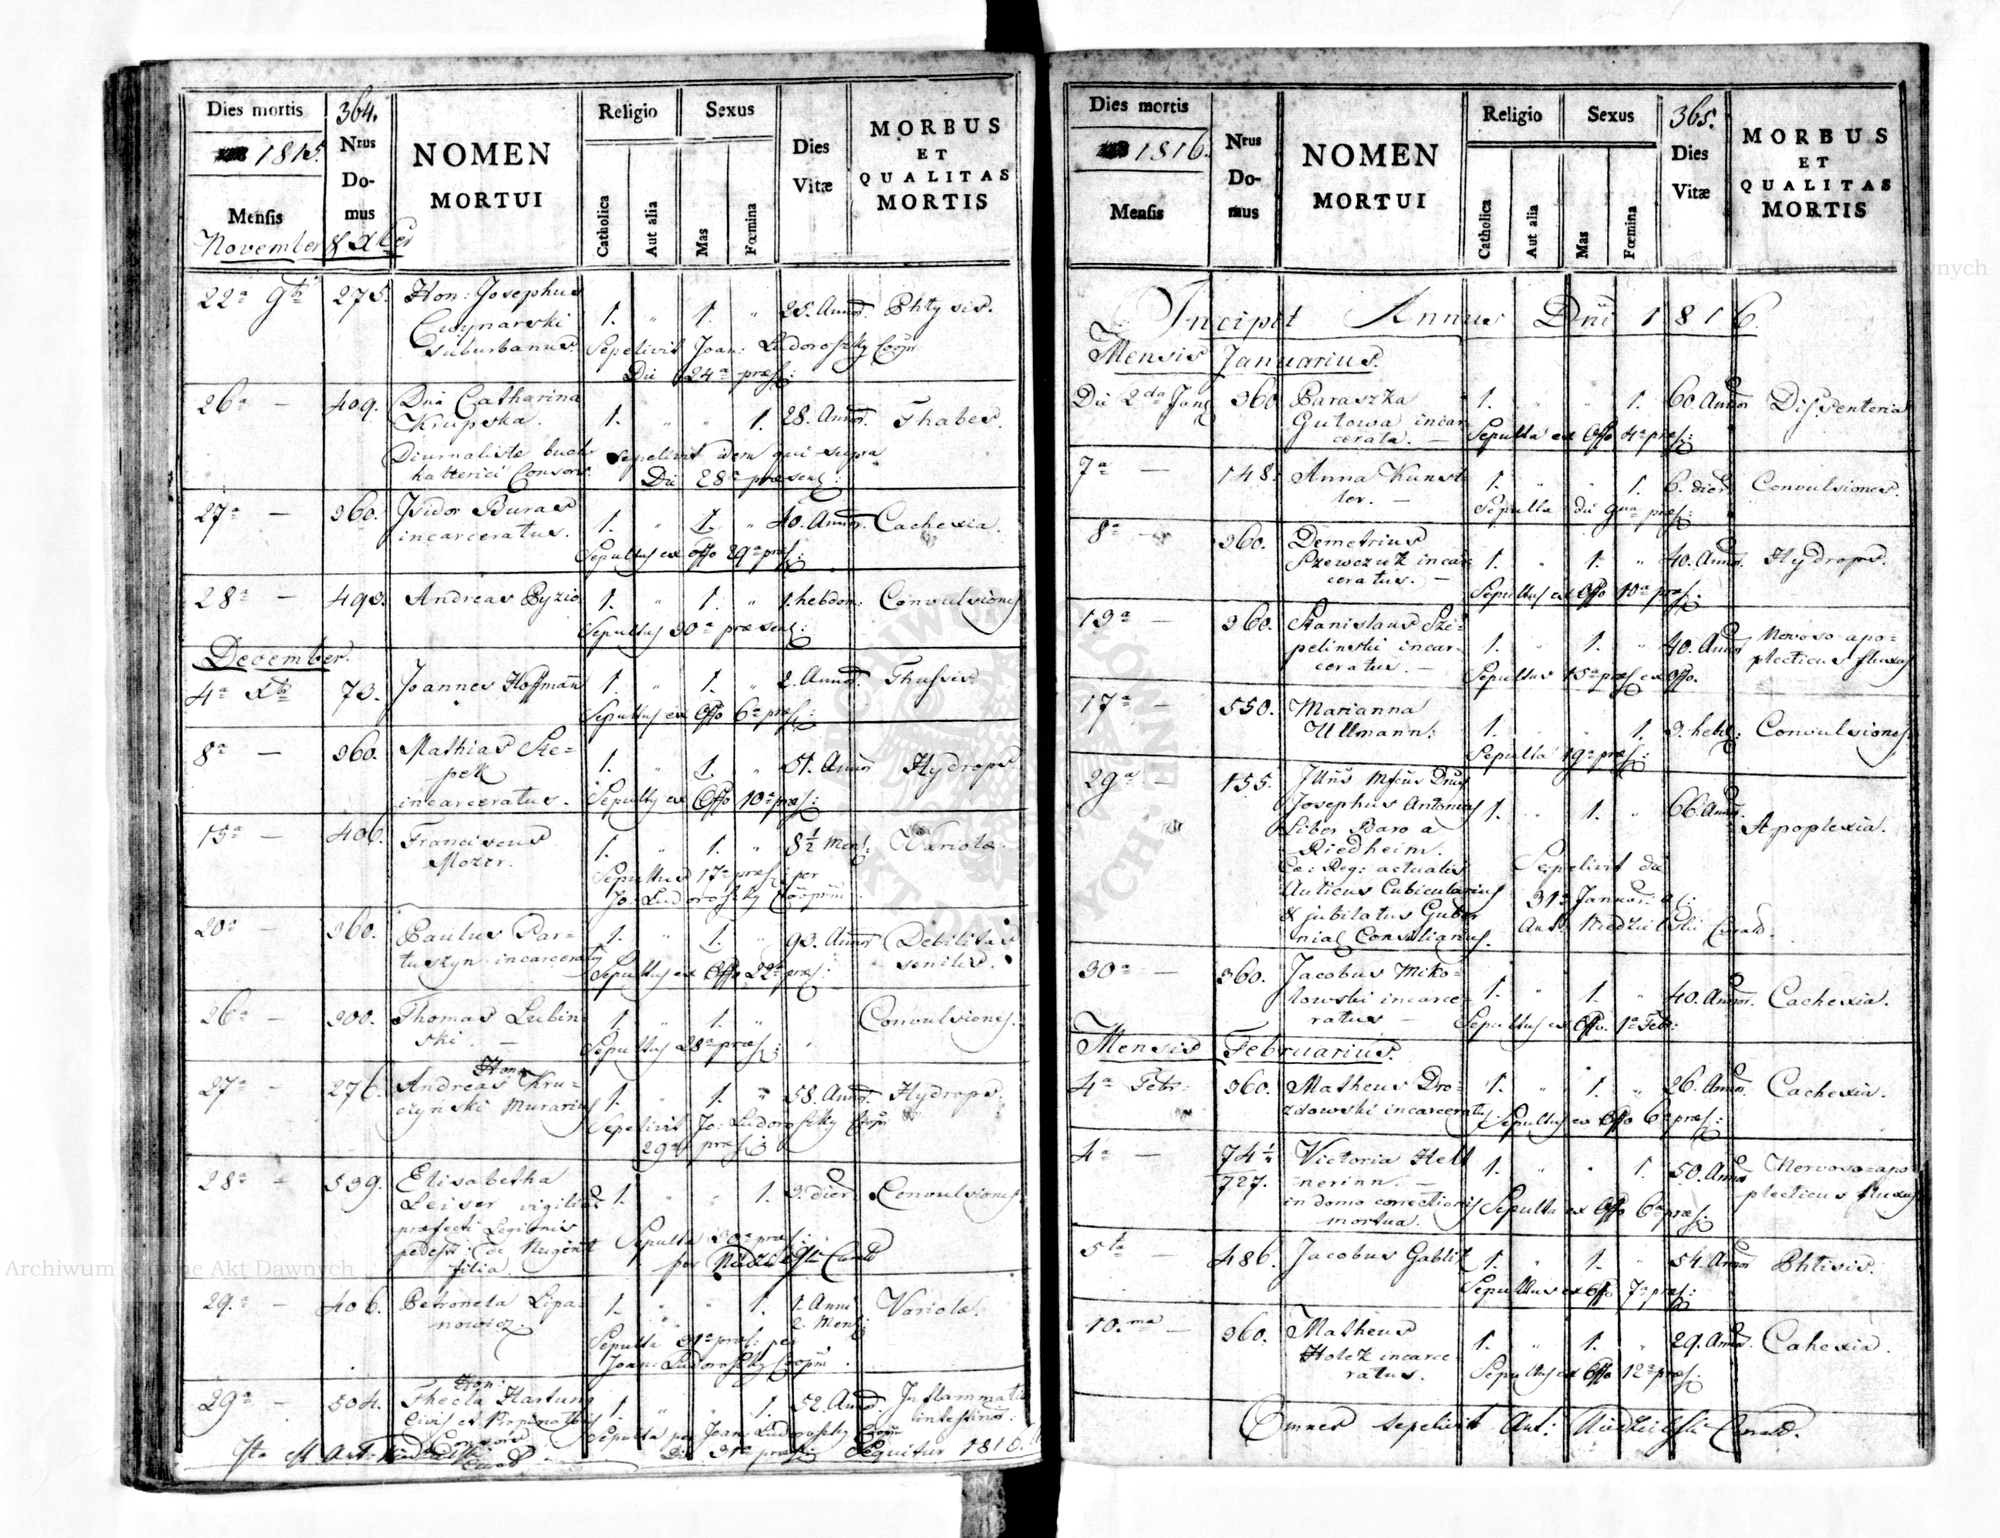 Dies mortis
1815.
Mensis
November & Xber
364.
Nrus
Do-
mus
NOMEN
MORTUI
Religio
Catholica
Aut alia
Sexus
Mas
Fœmina
Dies
Vitæ
MORBUS
ET
QUALITAS
MORTIS
22a 9br 275. Hon: Josephus
suburbanus 1. " 1. " 25. Annor. Phtysis.
Sepelivit Joan: Ludorofzky Coopr.
Die 24a præs:
26a — 409. Dna Catharina
Krupska. 1. " " 1. 28. Annor. Thabes.
Diurnaliste buch
halterici Consors. sepelivit idem qui supra
Die 28a præsent:
27a — 360. Isidor Buras
incarceratus. 1. " 1. " 40. Annor. Cachexia.
Sepultus ex offo 29a præs:
28a — 493. Andreas Pyzio 1. " 1. " 1. hebdom: Convulsiones
Sepultus 30a præsent:
December.
4a Xbr 73. Joannes Hoffmann 1. " 1. " 2. Annor. Thussis
Sepultus ex Offo 6a præs:
8a — 360. Mathias Ste-
pek
incarceratus. 1. " 1. " 51. Annor Hydrops
Sepultus ex Offo 10a præs:
15a — 406. Franciscus
Mozer. 1. " 1. " 8½ Mens: Variola.
Sepultus 17a præs: per
Jo: Ludorofzky Cooprm
20a — 360. Paulus Par-
tuszyn incarceratus 1. " 1. " 93. Annor Debilitas
senilis.
Sepultus ex Offo 22a præs:
26a — 300. Thomas Lubin-
ski. — 1. " 1. " Convulsiones.
Sepultus 28a præs:
27a — 276. Hon:
Andreas Kru-
czynski Murarius 1. " 1. " 58. Annor. Hydrops.
Sepelivit Jo: Ludorofzky Coopr
29a præs:
28a — 539. Elisabetha
Leiser vigiliar 1. " " 1. 3. dier. Convulsiones
præfecti Legionis
pedestr: de Nugent
filia. —
Sepulta 30a præs:
per
29a — 406. Petronela Lipa-
nowicz. 1. " " 1. 1. Anni
2. Mens: Variola.
Sepulta 31a præs: per
Joan: Ludorofzky Cooprm.
29a — 504. Hon:
Thecla Hartung
Civis et Propinatoris
Consors. 1. " " 1. 52. Annor. Inflammatio
intestinor:
Sepulta per Joan: Ludorofzky Coopr
Die 31a præs: Sequitur 1816.
Ita est Ant:
Dies mortis
1816.
Mensis
Nrus
Do-
mus
NOMEN
MORTUI
Religio
Catholica
Aut alia
Sexus
Mas
Fœmina
365.
Dies
Vitæ
MORBUS
ET
QUALITAS
MORTIS
Incipit Annus Dni 1816.
Mensis Januarius.
Die 2da Jan: 360 Paraszka
Gutowa incar-
cerata. — 1. " " 1. 60. Annor Dissenteria
Sepulta ex Offo 4a præs:
7a — 148. Anna Kunst-
ler. — 1. " " 1. 6. dier Convulsiones.
Sepulta die 9na præs:
8a — 360. Demetrius
Szewczuk incar-
ceratus. — 1. " 1. " 40. Annor. Hydrops.
Sepultus ex Offo 10a præs:
13a — 360. Stanislaus Sze-
pelinski incar-
ceratus. — 1. " 1. " 40. Annor Nervoso apo-
plecticus fluxus
Sepultus 15a præs ex Offo.
17a — 550. Marianna
Ullmann: 1. " " 1. 3. hebd: Convulsiones.
Sepulta 19a præs:
29a — 155. Illris Mfcus Dnus
Josephus Antonius
Liber Baro a
Riedheim.
Cæs: Reg: actualis
Aulicus Cubicularius
& jubilatus Guber
nial Consiliarius. 1. " 1. " 66. Annor. Apoplexia.
Sepelivit die
31a Januar: a: c:
30a — 360. Jacobus Miko-
lowski incarce-
ratus — 1. " 1. " 40. Annor. Cachexia.
Sepultus ex Offo. 1a Febr:
Mensis Februarius.
4a Febr: 360. Matheus Dro-
zdowski incarceratus 1. " 1. " 26. Annor. Cachexia.
Sepultus ex Offo 6a præs:
4a — 74½
727. Victoria Hell
nerinn. —
in domo correctionis
mortua. 1. " " 1. 50. Annor Nervoso-apo
plecticus fluxus
Sepulta ex Offo 6a præs:
5ta — 486. Jacobus Gablik 1. " 1. " 54. Annor Phtisis.
Sepultus ex Offo 7a præs:
10.ma — 360. Matheus
Holek incarce-
ratus. 1. " 1. " 29. Annor. Cahexia.
Sepultus ex Offo 12a præs:
Omnes sepelivit Ant:
Archiwum Główne Akt Dawnych
Archiwum Główne Akt Dawnych
ARCHIWUM GŁÓWNE AKT DAWNYCH